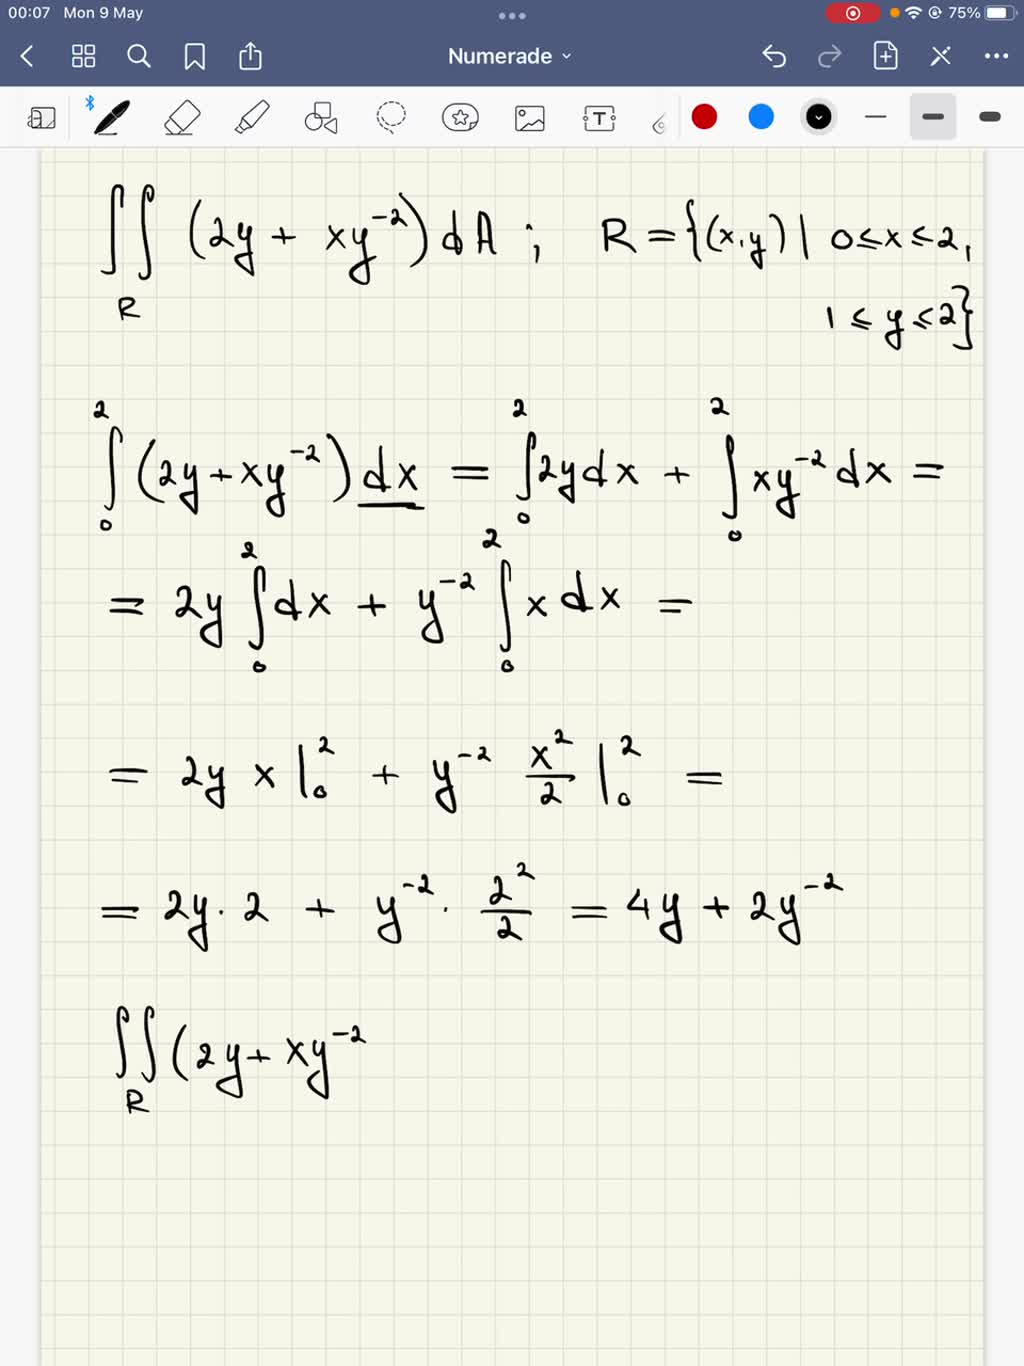 00:07 Mon 9 May 75%
Numerade
∬_R (2y + xy⁻²) dA ; R = {(x,y) | 0 ≤ x ≤ 2,
1 ≤ y ≤ 2}
∫₀² (2y + xy⁻²) dx = ∫₀² 2y dx + ∫₀² xy⁻² dx =
= 2y ∫₀² dx + y⁻² ∫₀² x dx =
= 2y x |₀² + y⁻² x²/2 |₀² =
= 2y · 2 + y⁻² · 2²/2 = 4y + 2y⁻²
∬_R (2y + xy⁻²